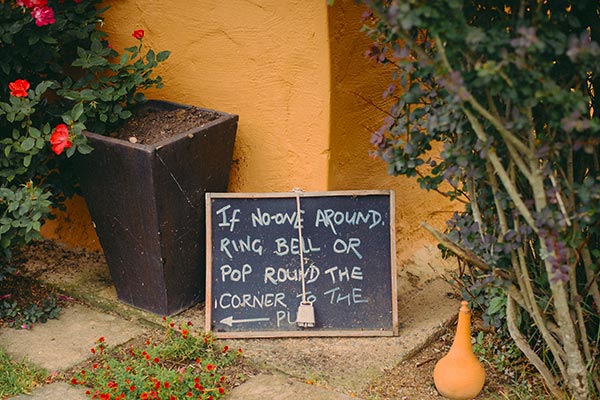 IF NO-ONE AROUND,
RING BELL OR
POP ROUND THE
CORNER TO THE